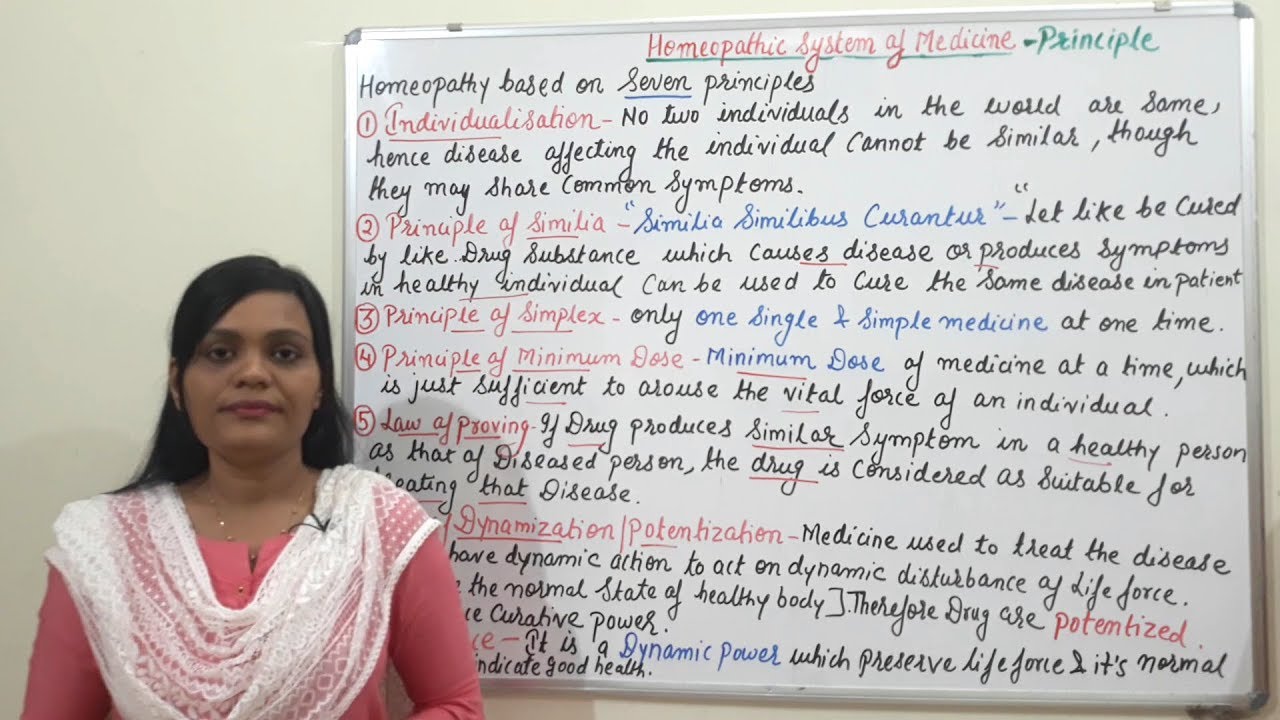 Homeopathic System of Medicine - Principle
Homeopathy based on Seven principles
① Individualisation - No two individuals in the world are same,
hence disease affecting the individual Cannot be Similar, though
they may Share Common Symptoms.
② Principle of Similia - "Similia Similibus Curantur" - "Let like be Cured
by like. Drug Substance which Causes disease or produces Symptoms
in healthy individual Can be used to Cure the Same disease in patient
③ Principle of Simplex - only one Single & Simple medicine at one time.
④ Principle of Minimum Dose - Minimum Dose of medicine at a time, which
is just Sufficient to arouse the vital force of an individual.
⑤ Law of proving - If Drug produces Similar Symptom in a healthy person
as that of Diseased person, the drug is Considered as Suitable for
eating that Disease.
/Dynamization/Potentization - Medicine used to treat the disease
have dynamic action to act on dynamic disturbance of Life force.
the normal State of healthy body]. Therefore Drug are potentized.
ce Curative power.
ce - It is a Dynamic power which preserve life force & it's normal
indicate good health.